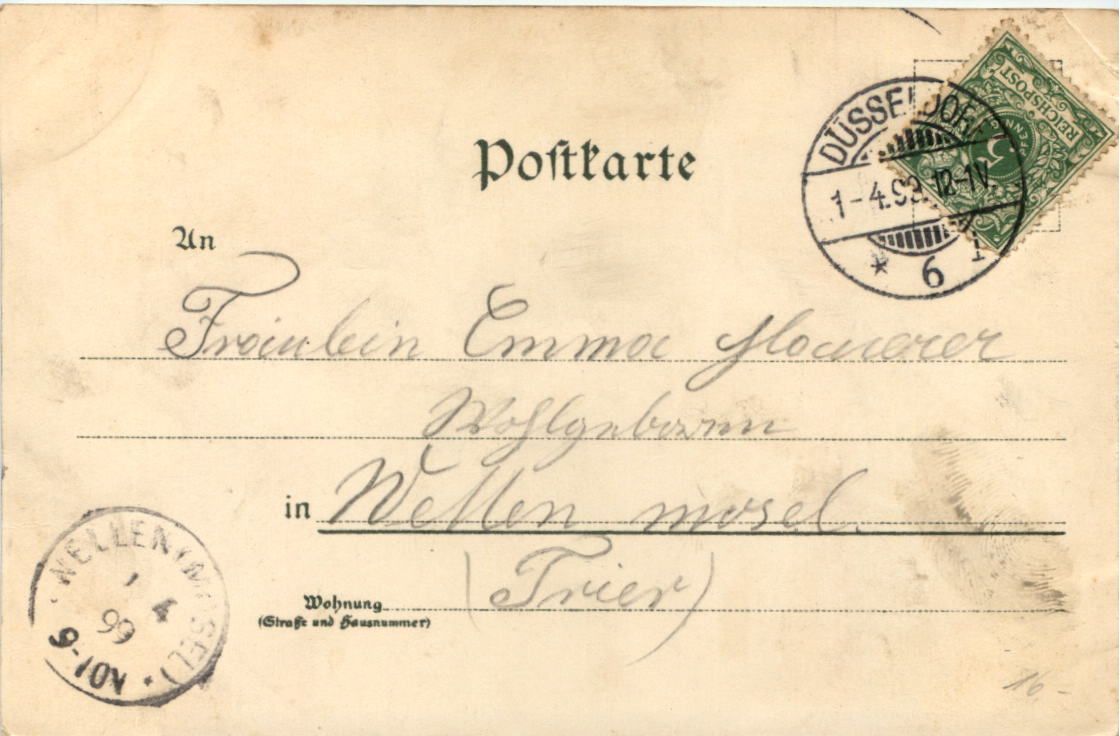 Postkarte
DÜSSELDORF
1-4.99. 12-1V.
* 6 1
REICHSPOST
5
An
Fräulein Emma
Wohlgeboren
in Wellen mosel.
(Trier)
Wohnung
(Straße und Hausnummer)
WELLEN (MOSEL)
1 4
99
9-10V
16-